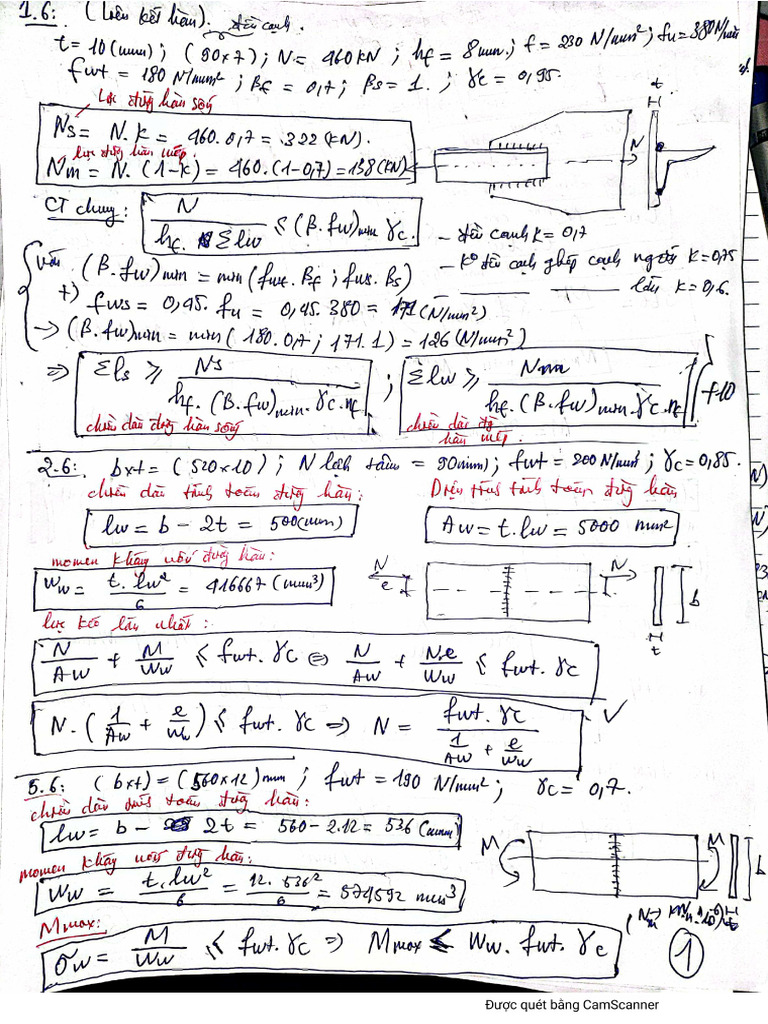 1.6: (Liên kết hàn). đều cạnh.
t = 10 (mm); (90x7); N = 460 kN; hf = 8 mm; f = 230 N/mm²; fu = 380 N/mm²
fwt = 180 N/mm²; βf = 0,7; βs = 1.; γc = 0,95.
Lực đường hàn sống
Ns = N.k = 460.0,7 = 322 (kN).
lực đường hàn mép.
Nm = N.(1-k) = 460.(1-0,7) = 138 (kN)
t
N
CT chung: N / hf. Σlw ≤ (β.fw)min γc.
- đều cạnh k = 0,7
- K° đều cạnh ghép cạnh ngắn k = 0,75
lớn k = 0,6.
Với (β.fw)min = min(fwf.βf; fws.βs)
+) fws = 0,45.fu = 0,45.380 = 171 (N/mm²)
→ (β.fw)min = min(180.0,7; 171.1) = 126 (N/mm²)
⇒ Σls ≥ Ns / hf.(β.fw)min.γc.nf ; Σlw ≥ Nm / hf.(β.fw)min.γc.nf +10
chiều dài đường hàn sống
chiều dài đg hàn mép.
2.6: bxt = (520x10); N lệch tâm = 90mm); fwt = 200 N/mm²; γc = 0,85.
chiều dài tính toán đường hàn:
Diện tích tính toán đường hàn
lw = b - 2t = 500(mm)
Aw = t.lw = 5000 mm²
momen kháng uốn đường hàn:
Ww = t.lw² / 6 = 416667 (mm³)
N e N b t
lực kéo lớn nhất:
N/Aw + M/Ww ≤ fwt.γc ⇔ N/Aw + N.e/Ww ≤ fwt.γc
N.(1/Aw + e/Ww) ≤ fwt.γc ⇒ N = fwt.γc / (1/Aw + e/Ww)
5.6: (bxt) = (560x12) mm; fwt = 190 N/mm²; γc = 0,7.
chiều dài tính toán đường hàn:
lw = b - 2t = 560 - 2.12 = 536 (mm)
momen kháng uốn đường hàn:
Ww = t.lw² / 6 = 12.536² / 6 = 574592 mm³
M M b
Mmax:
σw = M/Ww ≤ fwt.γc ⇒ Mmax ≤ Ww.fwt.γc
1
Được quét bằng CamScanner